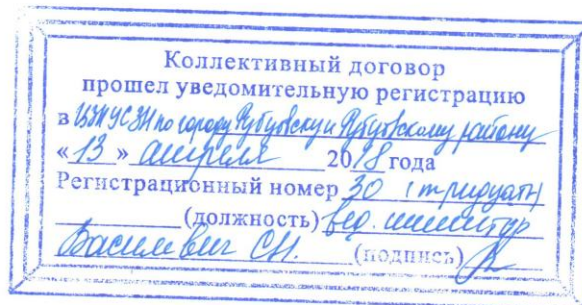 Коллективный договор
прошел уведомительную регистрацию
в ЦЗН УСЗН по городу Рубцовску и Рубцовскому району
«13» апреля 2018 года
Регистрационный номер 30 (тридцать)
(должность) вед. инспектор
Василевич С.Н. (подпись)